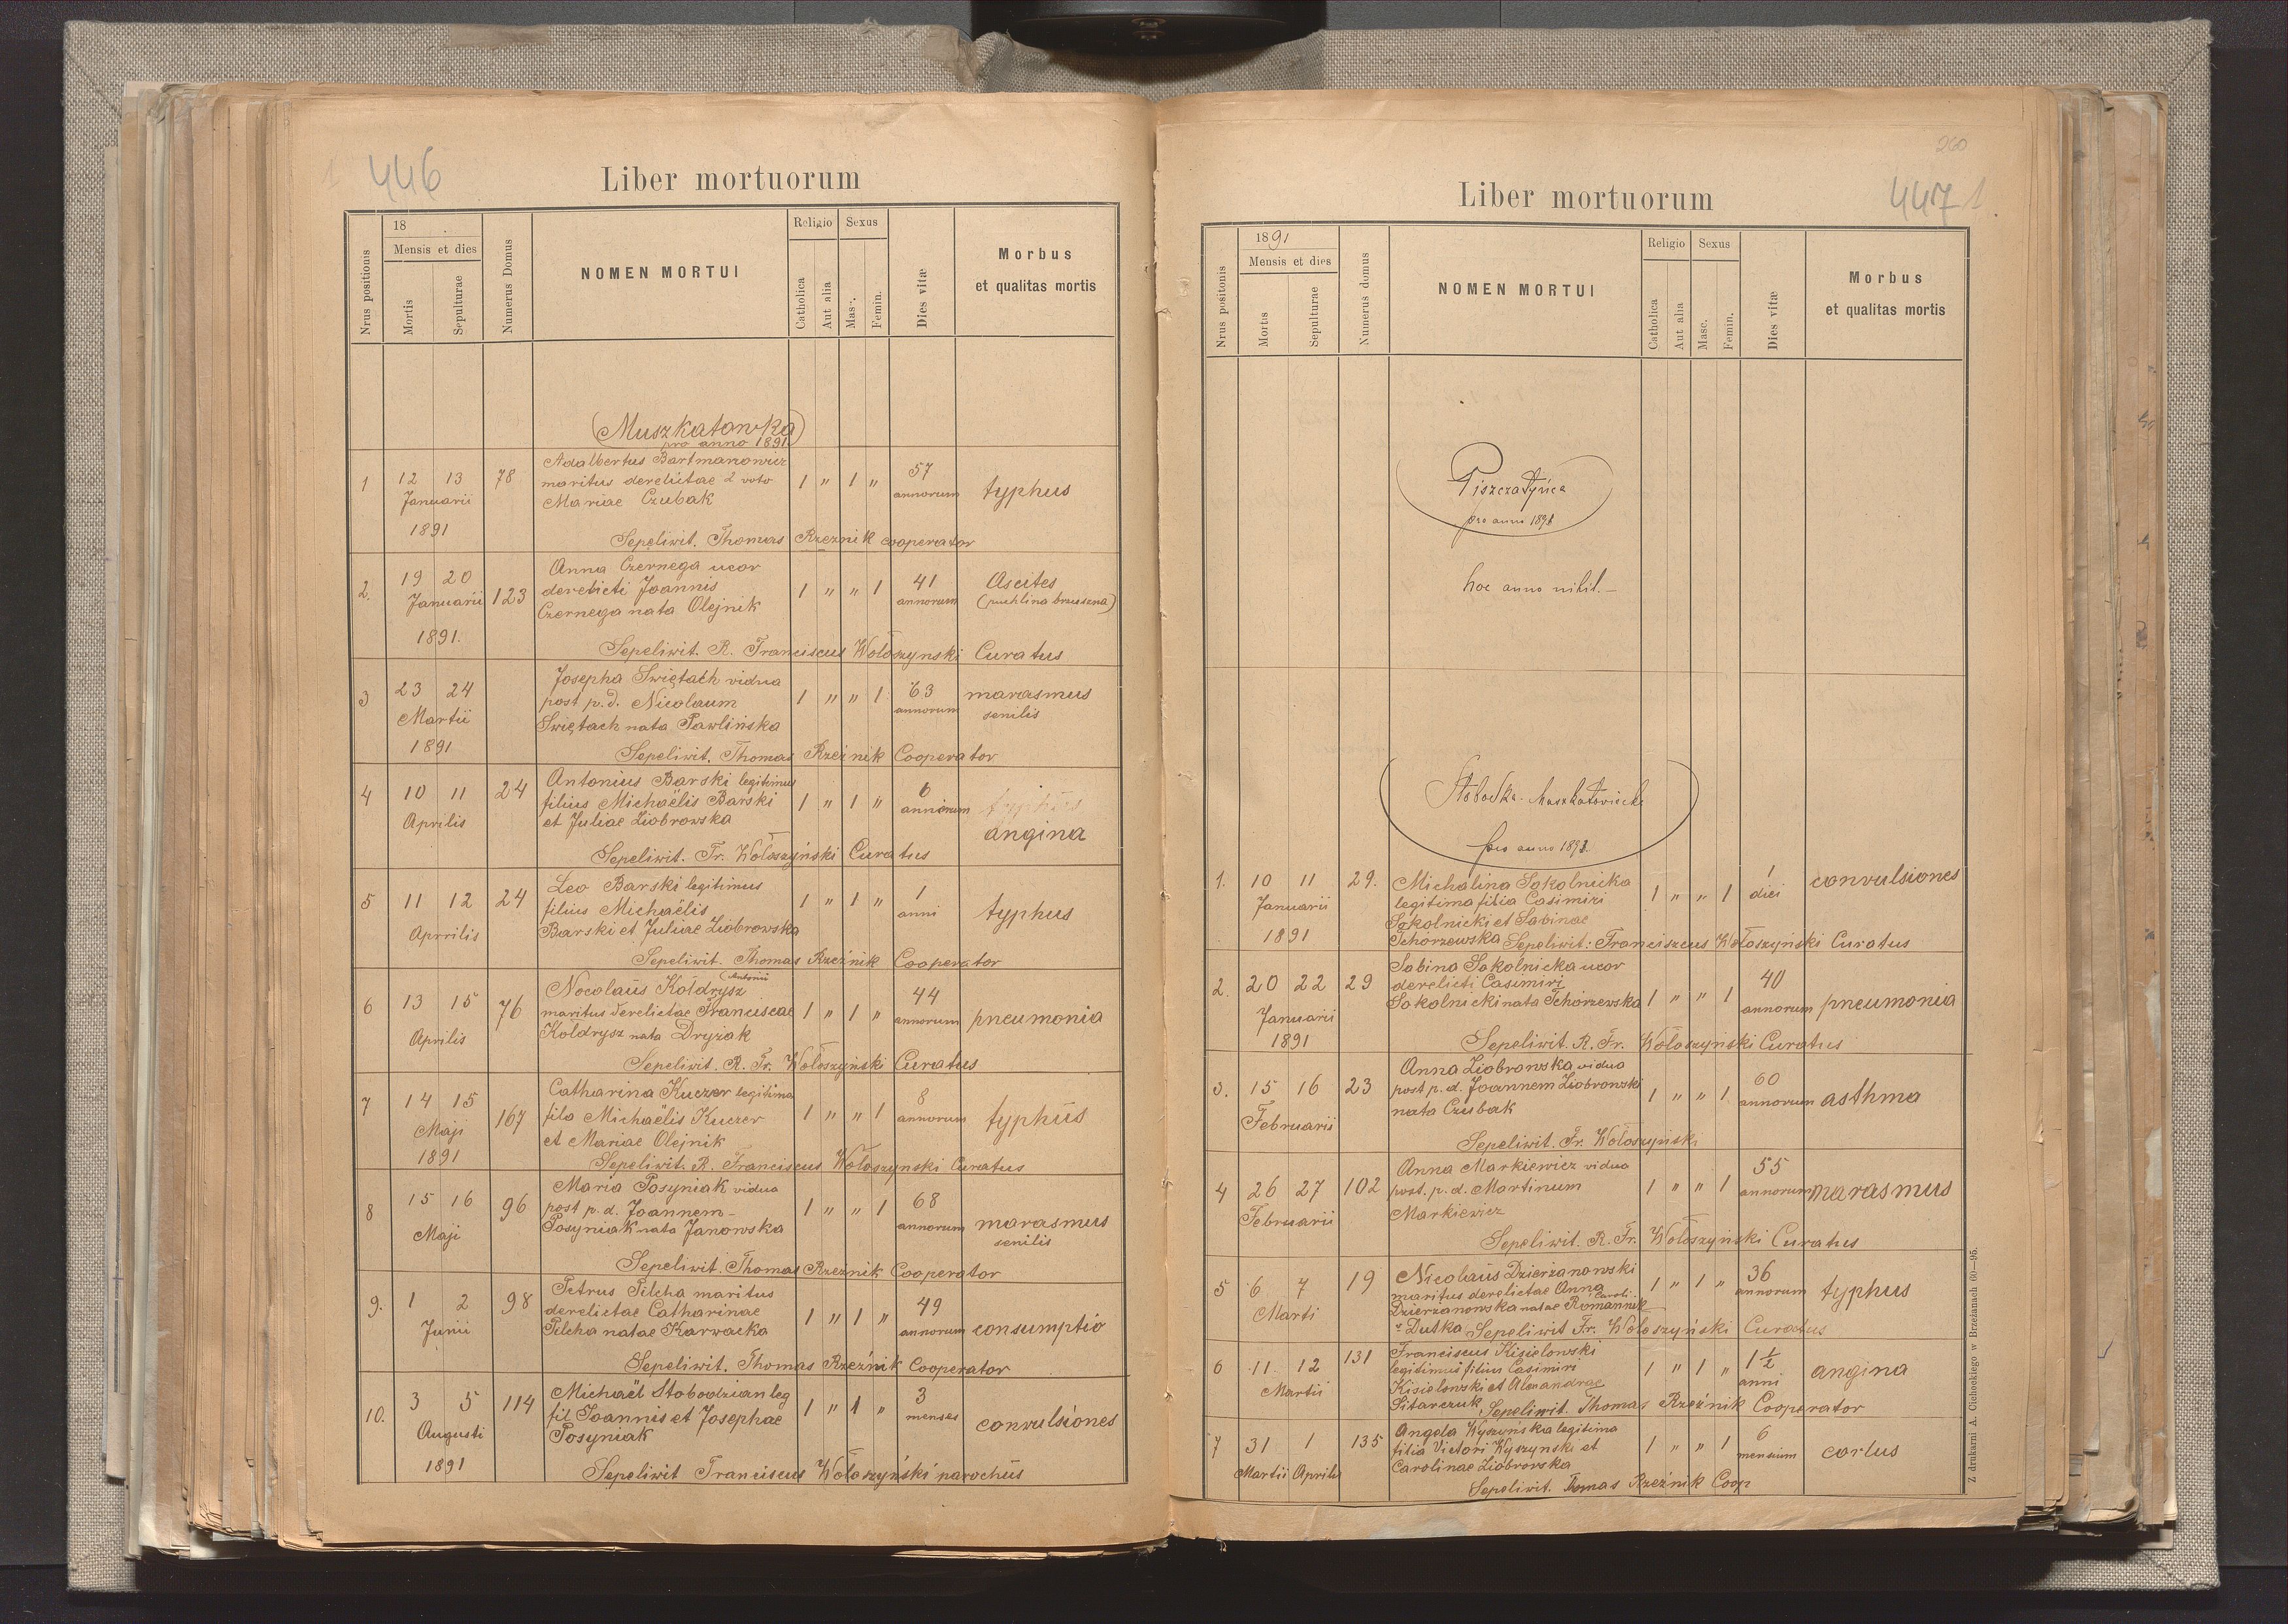 446
Liber mortuorum
Nrus positionis
18
Mensis et dies
Mortis
Sepulturae
Numerus Domus
NOMEN MORTUI
Religio
Catholica
Aut alia
Sexus
Masc.
Femin.
Dies vitæ
Morbus
et qualitas mortis
Muszkatowka
pro anno 1891
1 12 13 78 Adalbertus Bartmanowicz 1 " 1 " 57 typhus
Januarii maritus derelictae 2 voto annorum
1891 Mariae Czubak
Sepelivit. Thomas Rzeznik cooperator
2. 19 20 123 Anna Czernega uxor 1 " " 1 41 Ascites
Januarii derelicti Joannis annorum (puchlina brzuszna)
1891. Czernega nata Olejnik
Sepelivit. R. Franciscus Wołoszynski Curatus
3 23 24 Josepha Swiętach vidua 1 " " 1 63 marasmus
Martii post p.d. Nicolaum annorum senilis
1891 Swiętach nata Pawlińska
Sepelivit. Thomas Rzeźnik Cooperator
4 10 11 24 Antonius Barski legitimus 1 " 1 " 6 typhus
Aprilis filius Michaëlis Barski annorum angina
et Juliae Ziobrowska
Sepelivit. Fr. Wołoszyński Curatus
5 11 12 24 Leo Barski legitimus 1 " 1 " 1 typhus
Aprrilis filius Michaëlis anni
Barski et Juliae Ziobrowska
Sepelivit. Thomas Rzeźnik Cooperator
6 13 15 76 Nocolaus Kołdrysz (Antonii 1 " 1 " 44 pneumonia
Aprilis maritus derelictae Franciscae annorum
Kołdrysz nata Dryżak
Sepelivit. R. Fr. Wołoszyński Curatus
7 14 15 167 Catharina Kuczer legitima 1 " " 1 8 typhus
Maji fila Michaëlis Kuczer annorum
1891 et Mariae Olejnik
Sepelivit. R. Franciscus Wołoszynski Curatus
8 15 16 96 Maria Posyniak vidua 1 " " 1 68 marasmus
Maji post p.d. Joannem annorum senilis
Posyniak nata Janowska
Sepelivit. Thomas Rzeznik Cooperator
9. 1 2 98 Petrus Pilcha maritus 1 " 1 " 49 consumptio
Junii derelictae Catharinae annorum
Pilcha natae Karwacka
Sepelivit. Thomas Rzeźnik Cooperator
10. 3 5 114 Michaël Słobodzian leg 1 " 1 " 3 convulsiones
Augusti fil Joannis et Josephae menses
1891 Posyniak
Sepelivit Franciscus Wołoszyński parochus
260
447
1
Liber mortuorum
Nrus positonis
1891
Mensis et dies
Mortis
Sepulturae
Numerus domus
NOMEN MORTUI
Religio
Catholica
Aut alia
Sexus
Masc.
Femin.
Dies vitæ
Morbus
et qualitas mortis
Piszczatyńce
pro anno 1891
hoc anno nihil.—
Słobodka Muszkatowiecka
pro anno 1891.
1. 10 11 29. Michalina Sokolnicka 1 " " 1 1 convulsiones
Januarii legitima filia Casimiri diei
1891 Sokolnicki et Sabinae
Tchorzewska Sepelivit: Franciszcus Wołoszyński Curatus
2. 20 22 29 Sabina Sokolnicka uxor 1 " " 1 40 pneumonia
Januarii derelicti Casimiri annorum
1891 Sokolnicki nata Tchorzewska
Sepelivit. R. Fr. Wołoszyński Curatus
3. 15 16 23 Anna Ziobrowska vidua 1 " " 1 60 asthma
Februarii post p.d. Joannem Ziobrowski annorum
nata Czubak
Sepelivit. Fr. Wołoszyński
4 26 27 102 Anna Markiewicz vidua 1 " " 1 55 marasmus
Februarii post. p.d. Martinum annorum
Markiewicz
Sepelivit. R. Fr. Wołoszyński Curatus
5 6 7 19 Nicolaus Dzierżanowski 1 " 1 " 36 typhus
Marti maritus derelictae Anna annorum
Dzierżanowska natae Romannek Caroli
Dutka Sepelivit Fr. Wołoszyński Curatus
6 11. 12 131 Franciscus Kisielowski 1 " 1 " 1 1/2 angina
Martii legitimus filius Casimiri anni
Kisielowski et Alexandrae
Sitarczuk Sepelivit. Thomas Rzeźnik Cooperator
7 31 1 135 Angela Wyszyńska legitima 1 " " 1 6
Martii Aprilis filia Victori Wyszynski et mensium
Carolinae Ziobrowska
Sepelivit. Thomas Rzeźnik Coop
Z drukarni A. Ciehockiego w Brzeżanach 60—95.